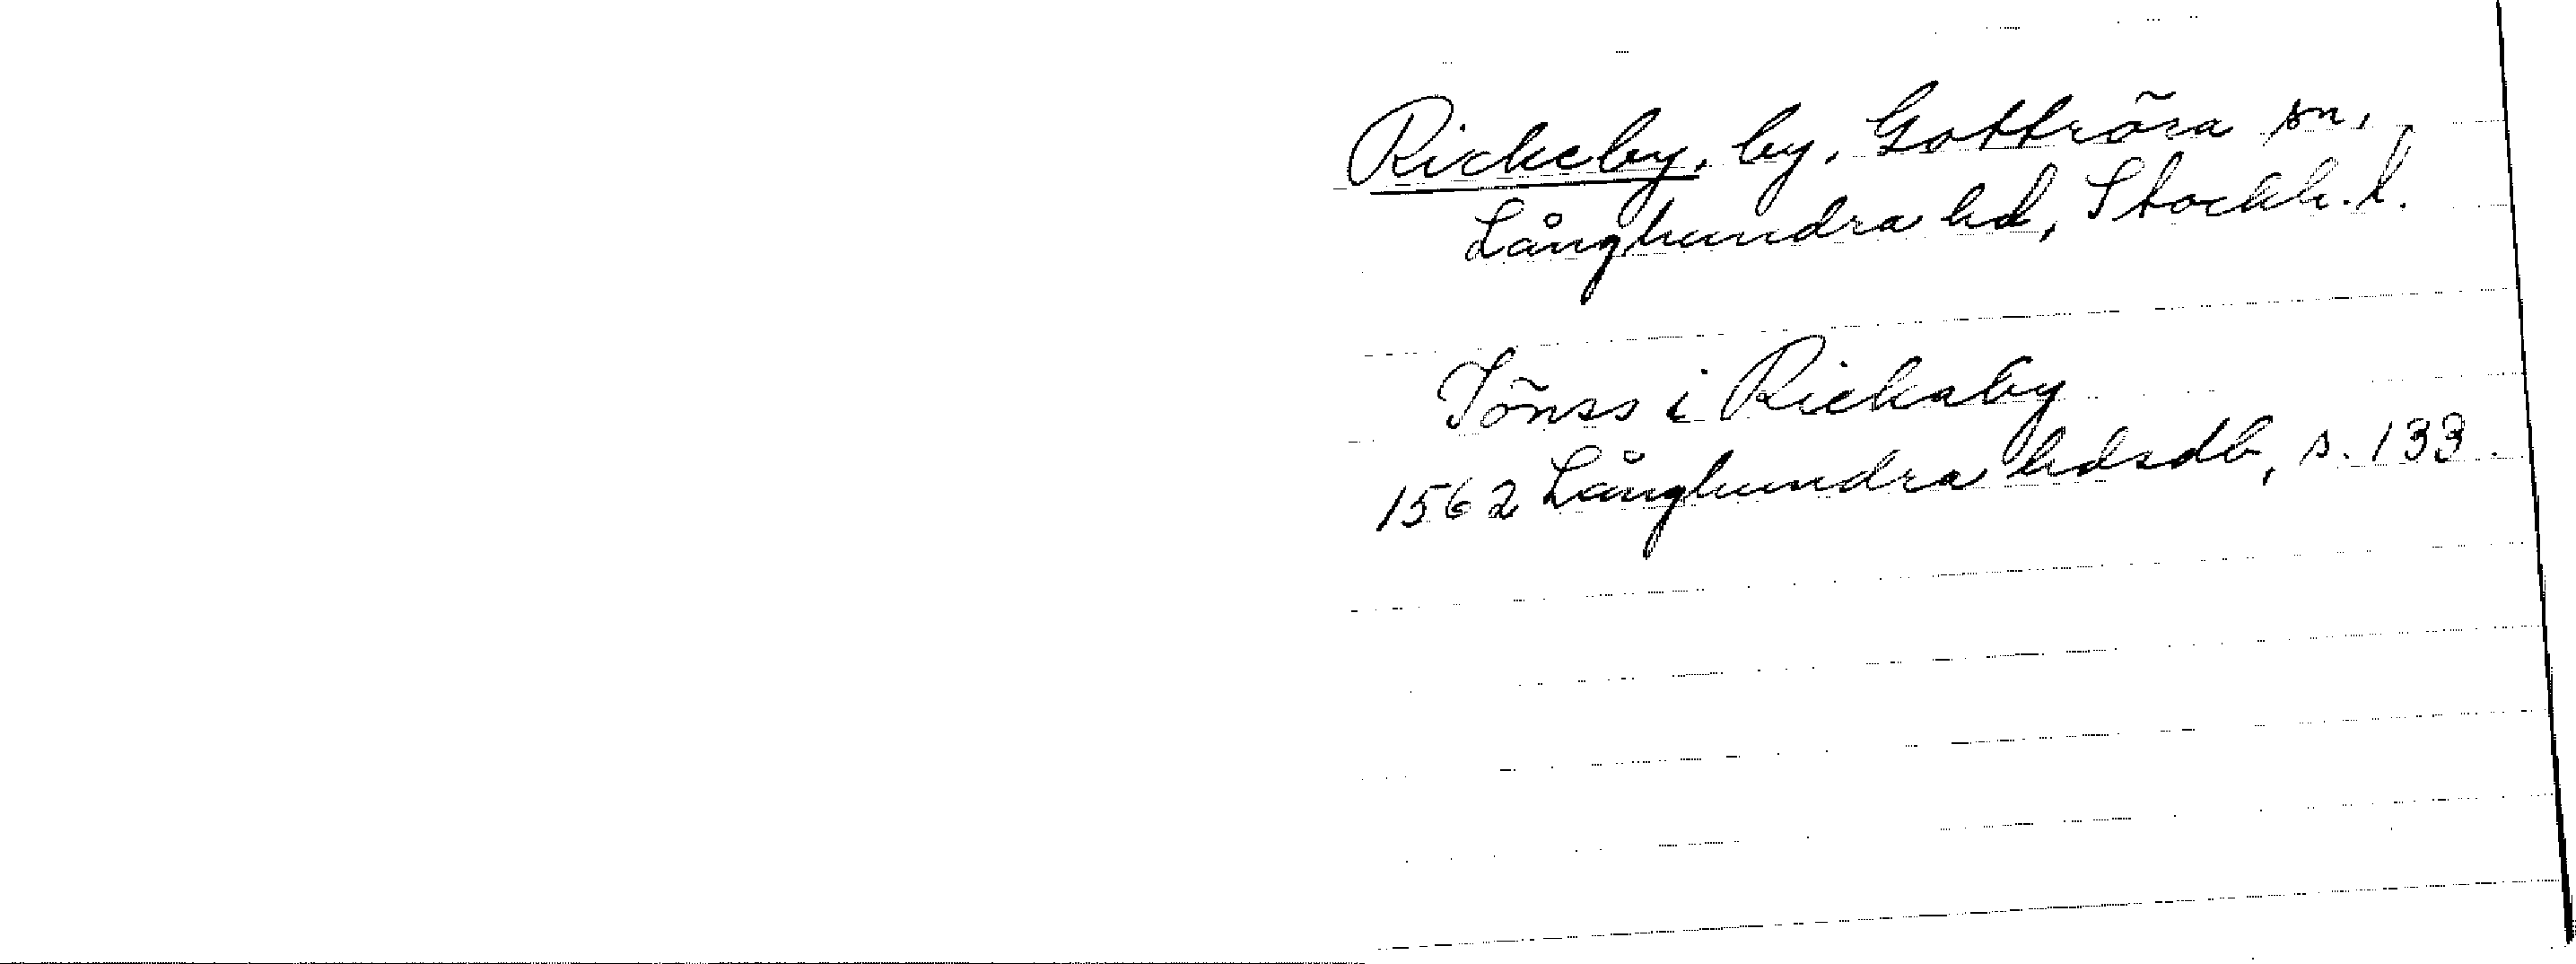 Rickeby, by, Gottröra sn,
Långhundra hd, Stockh. l.
Jönss i Rickaby
1562 Långhundra hdsdb, s. 133.